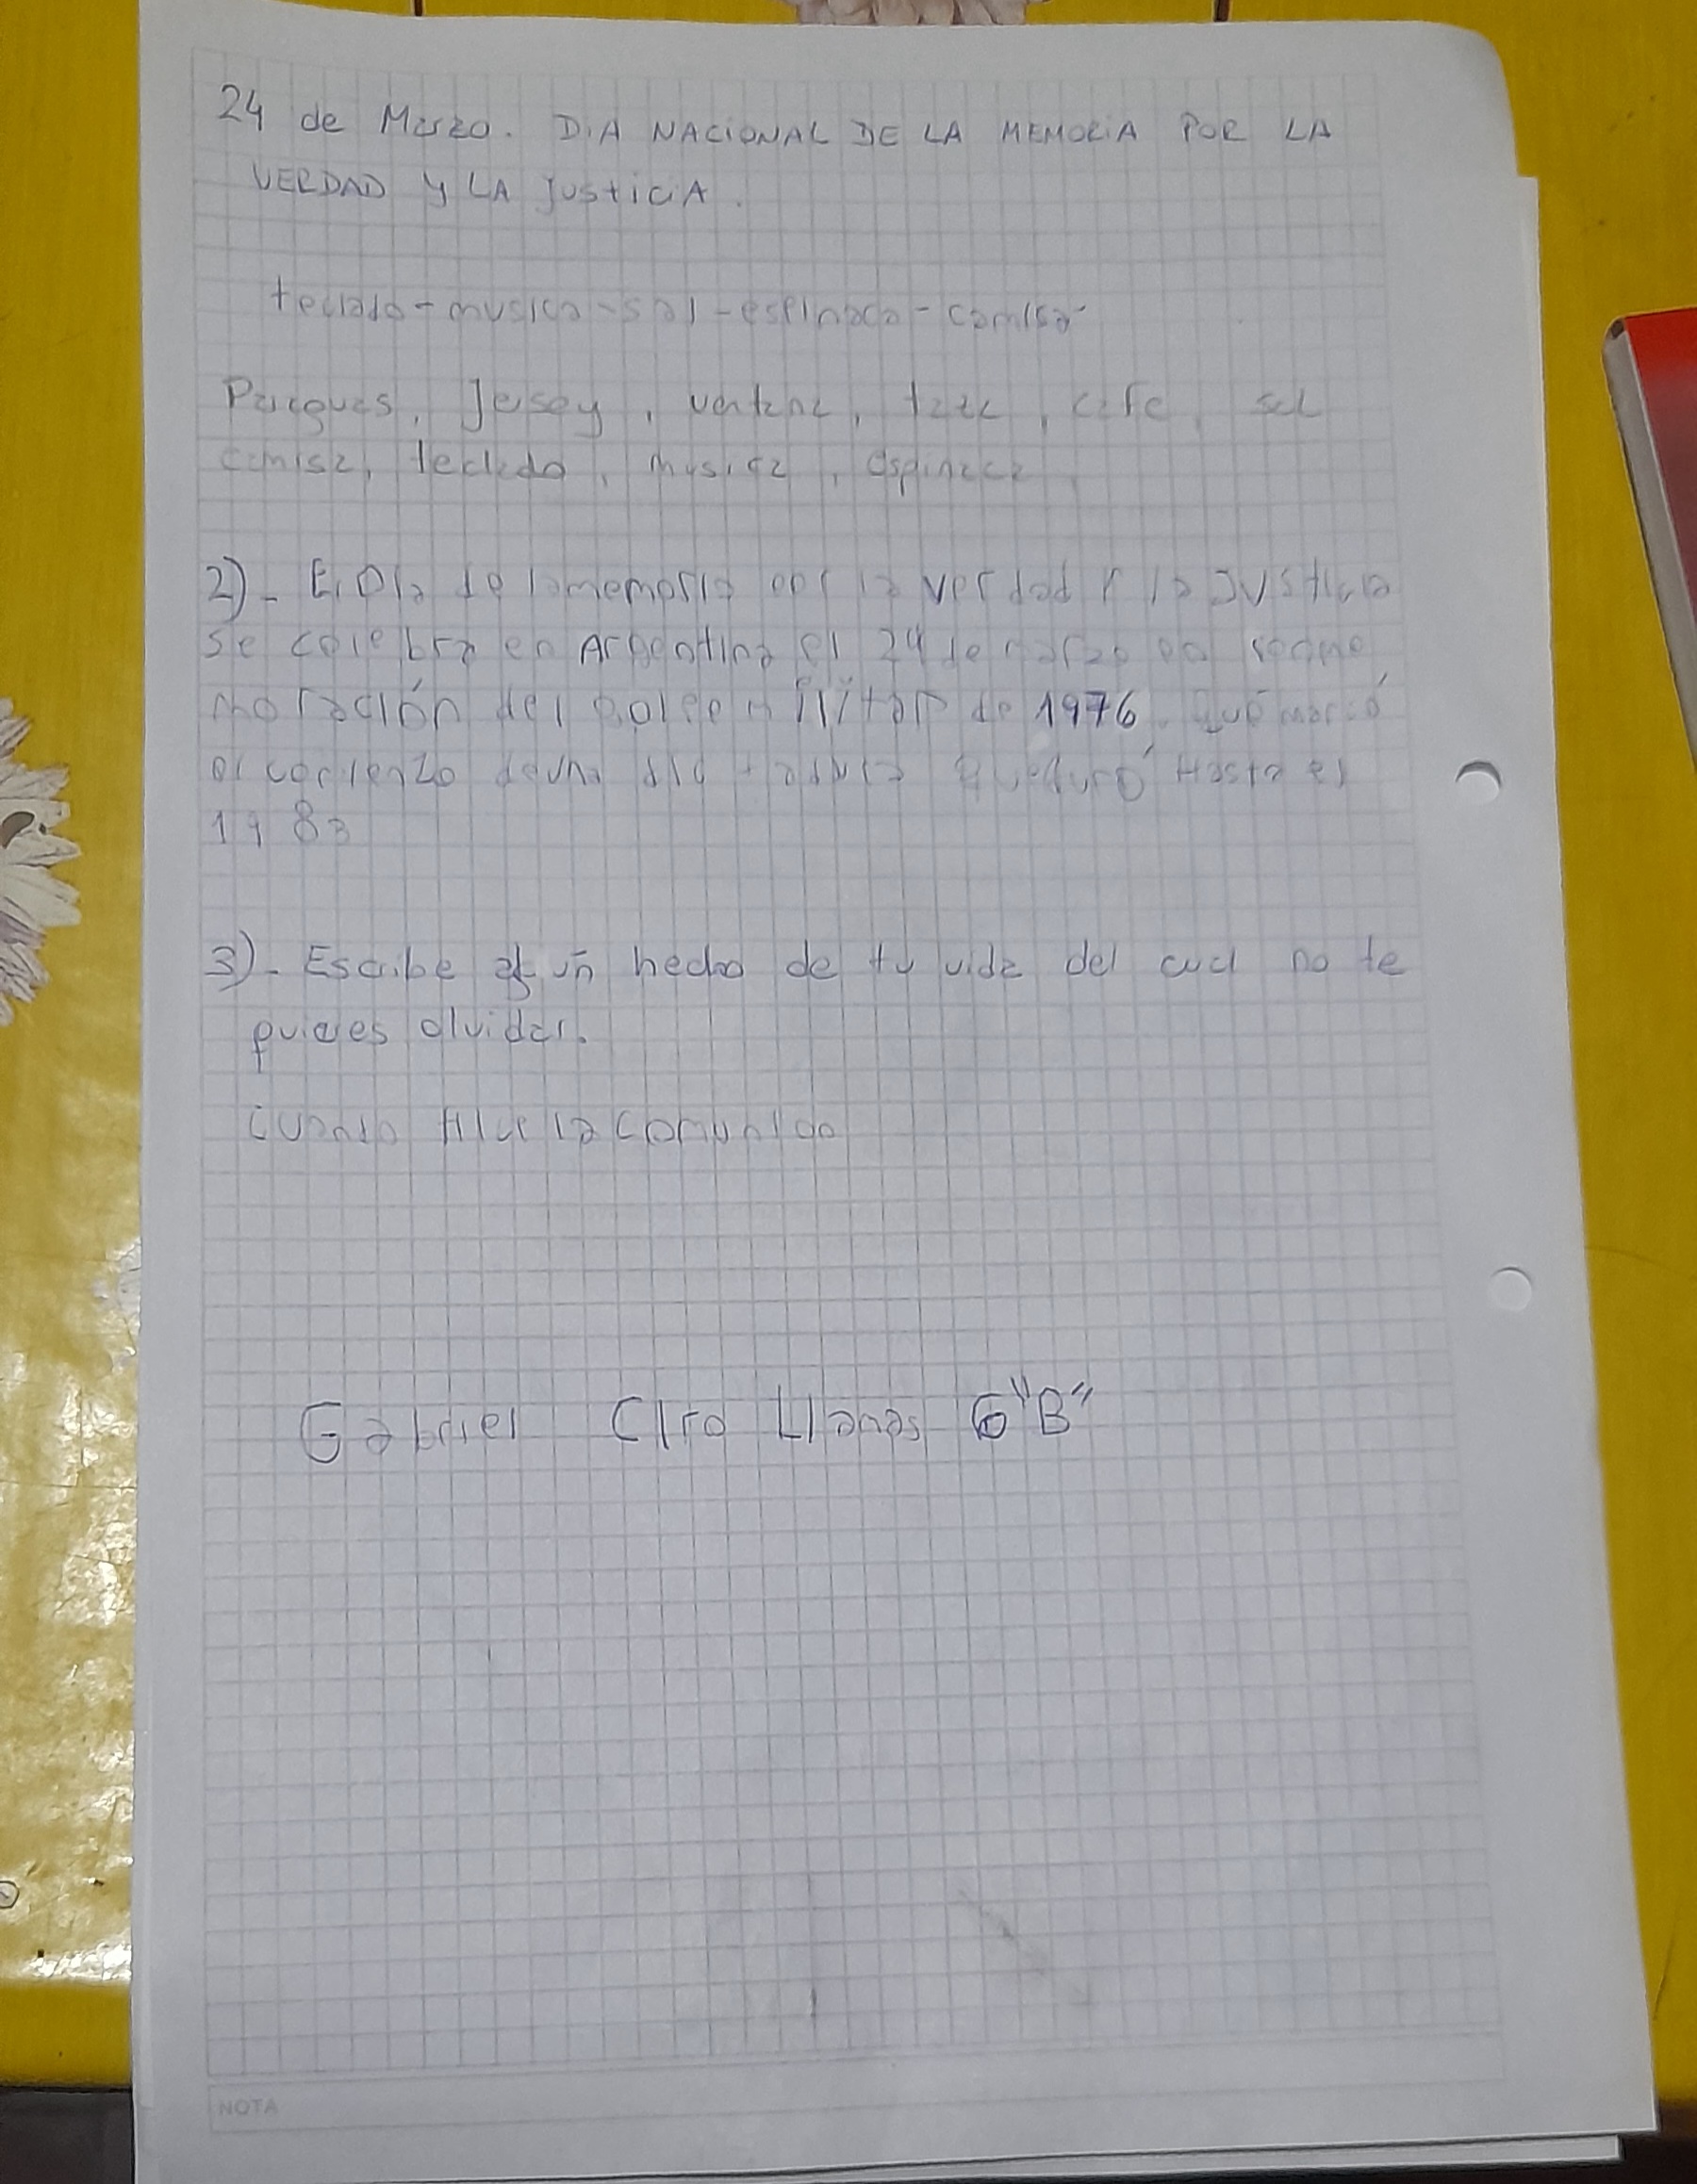 24 de Marzo. DiA NACiONAL DE LA MEMORiA POR LA
VERDAD y LA JusticiA.
teclado-musica-sal-espinaca-camisa
Parques, Jersey, ventana, taza, cafe, sal
camisa, teclado, musica, espinaca
2)- El Dia de la memoria por la verdad y la Justicia
se celebra en Argentina el 24 de marzo en conme
moración del golpe militar de 1976. que marcó
el comienzo de una dictadura que duró Hasta el
1983
3)- Escribe un hecho de tu vida del cual no te
quieres olvidar.
cuando hice la comunion
Gabriel Ciro Llanos 6"B"
NOTA